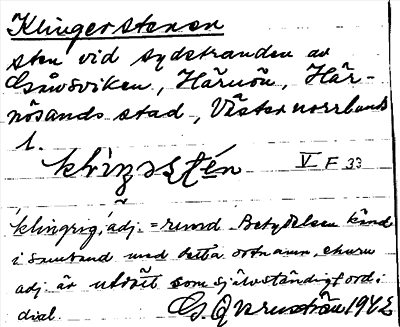 Klingerstenen
sten vid sydstranden av
Gånsviken, Härnön, Här-
nösands stad, Västernorrlands
l.
V F 33
klingrig, adj. = rund. Betydelsen känd
i samband med detta ortnamn, ehuru
adj. är utdött som självständigt ord i
dial. 1942